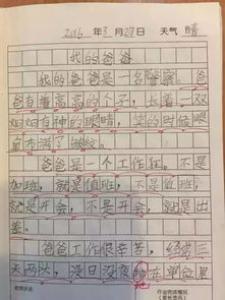 2016年3月27日 天气 晴
我的爸爸
我的爸爸是一名警察。爸
爸有着高高的个子，长着一双
炯炯有神的眼睛，笑的时候眼
角布满了皱纹。
爸爸是一个工作狂，不是
加班，就是值班，不是值班，
就是开会，不是开会，就是出
差。
爸爸工作很辛苦，经常三
天两头，没日没夜